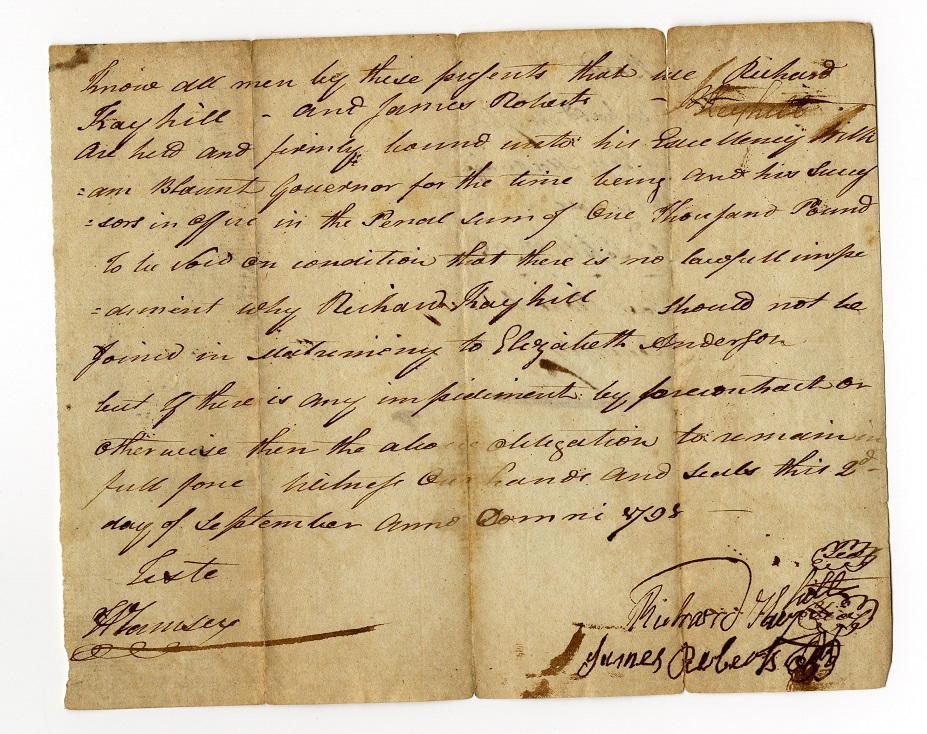 Know all men by these presents that we Richard
Kayhill - and James Roberts -
Are held and firmly bound unto his Excellency Willi
=am Blount Governor for the time being and his Succes
=sors in office in the Penal Sum of One Thousand Pound
to be Void on condition that there is no lawfull impe
=diment why Richard Kayhill should not be
Joined in Matrimony to Elizabeth Anderson
but if there is any impediment by precontract or
otherwise then the above obligation to remain in
full force Witness Our hands and seals this 2d
day of September Anno Domni 1791
Teste
Richard
James Roberts